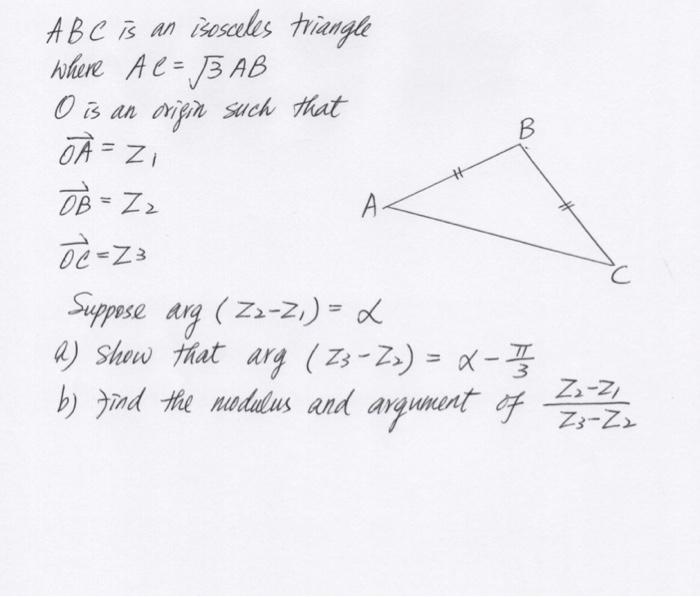 ABC is an isosceles triangle
where AC = √3 AB
O is an origin such that
OA→ = Z1
OB→ = Z2
OC→ = Z3
A
B
C
Suppose arg (Z2-Z1) = α
a) show that arg (Z3-Z2) = α - π/3
b) find the modulus and argument of (Z2-Z1)/(Z3-Z2)